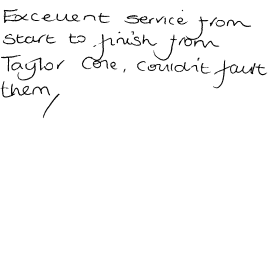 Excellent service from
start to finish from
Taylor Cole, couldn't fault
them